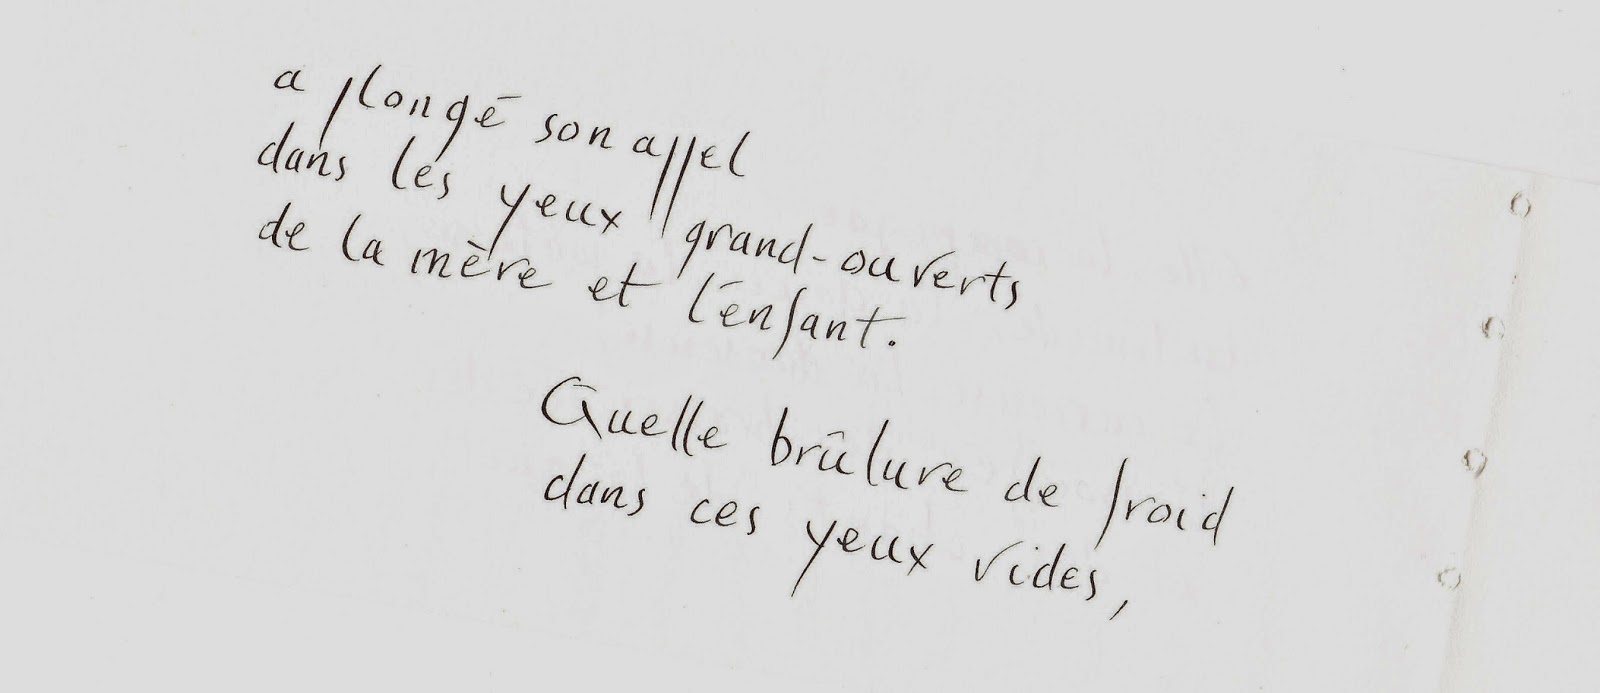 a plongé son appel
dans les yeux grand-ouverts
de la mère et l'enfant.
Quelle brûlure de froid
dans ces yeux vides,